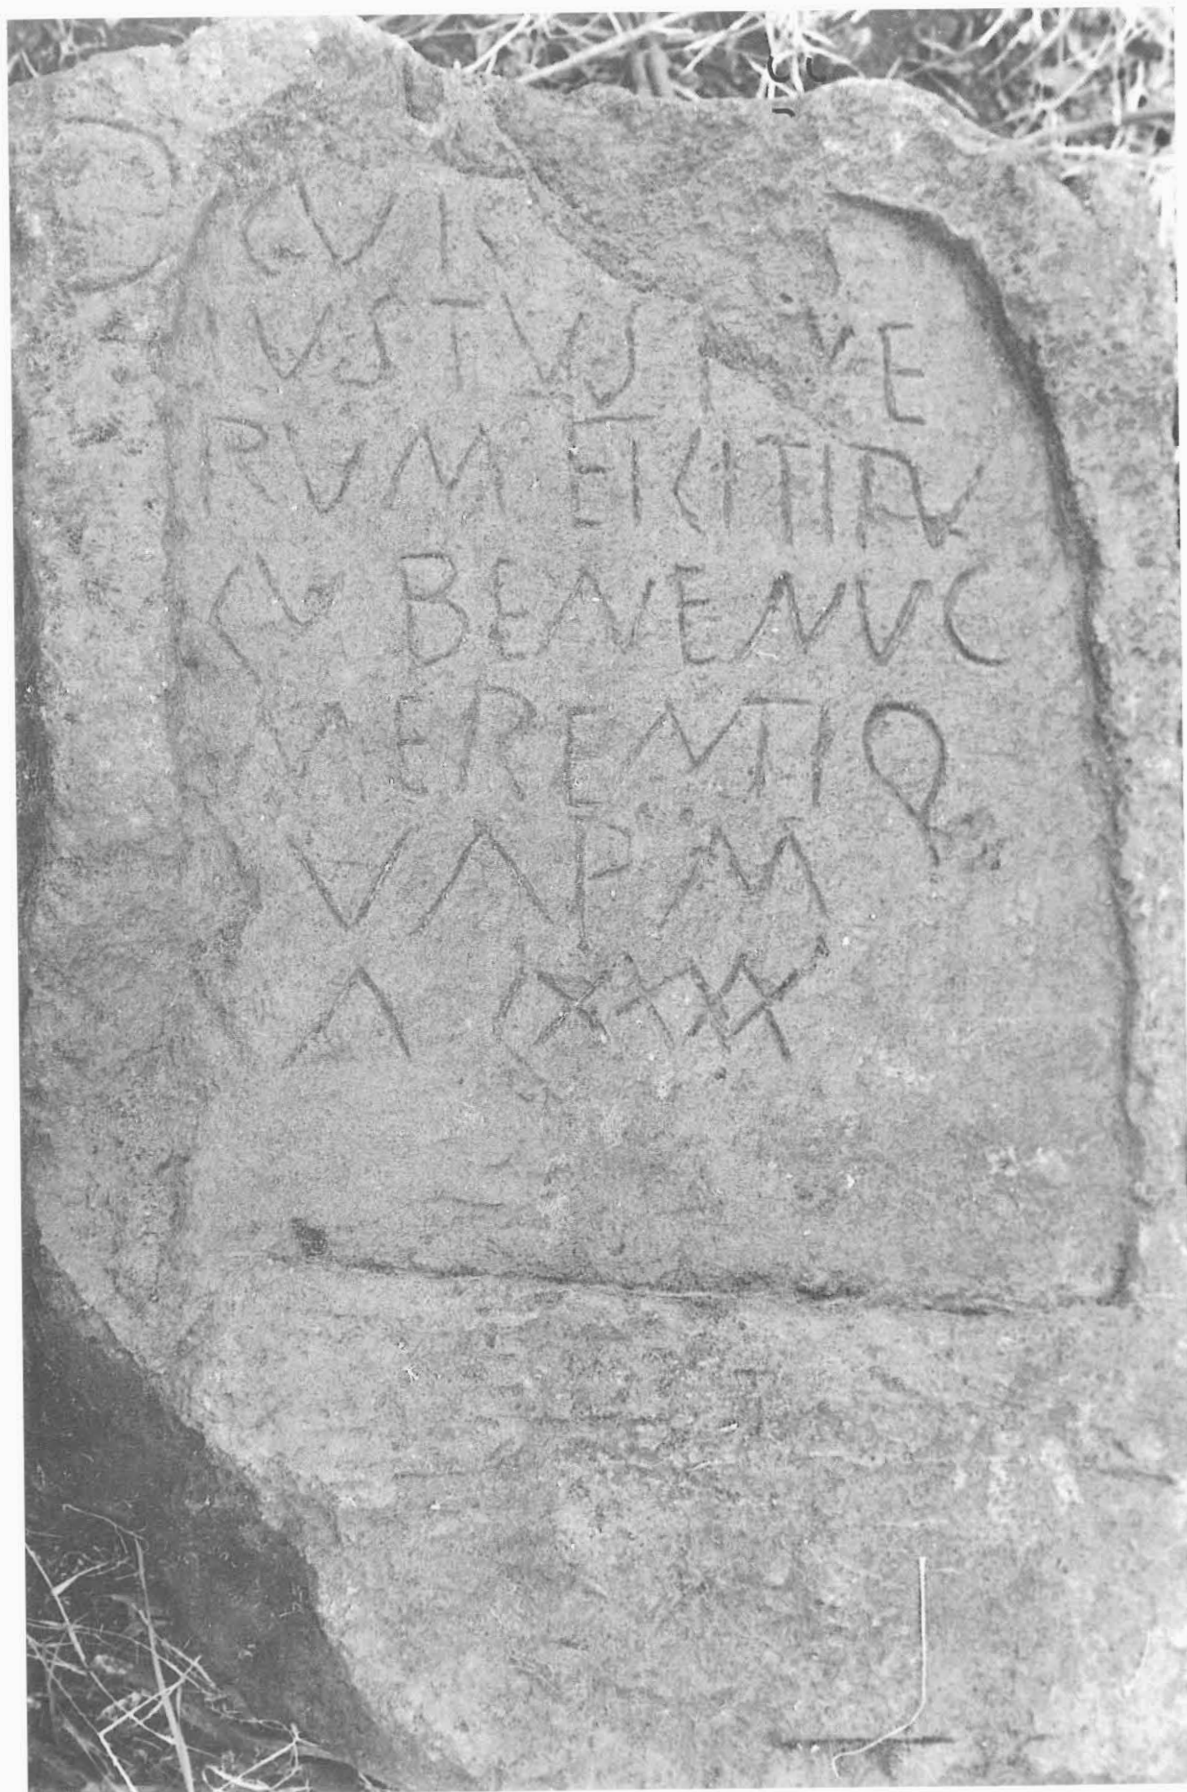 D
CVI
IVSTVS VE
RVM ETCITIPV
CV BENENVC
MERENTI Q
VAPM
A LXXXX